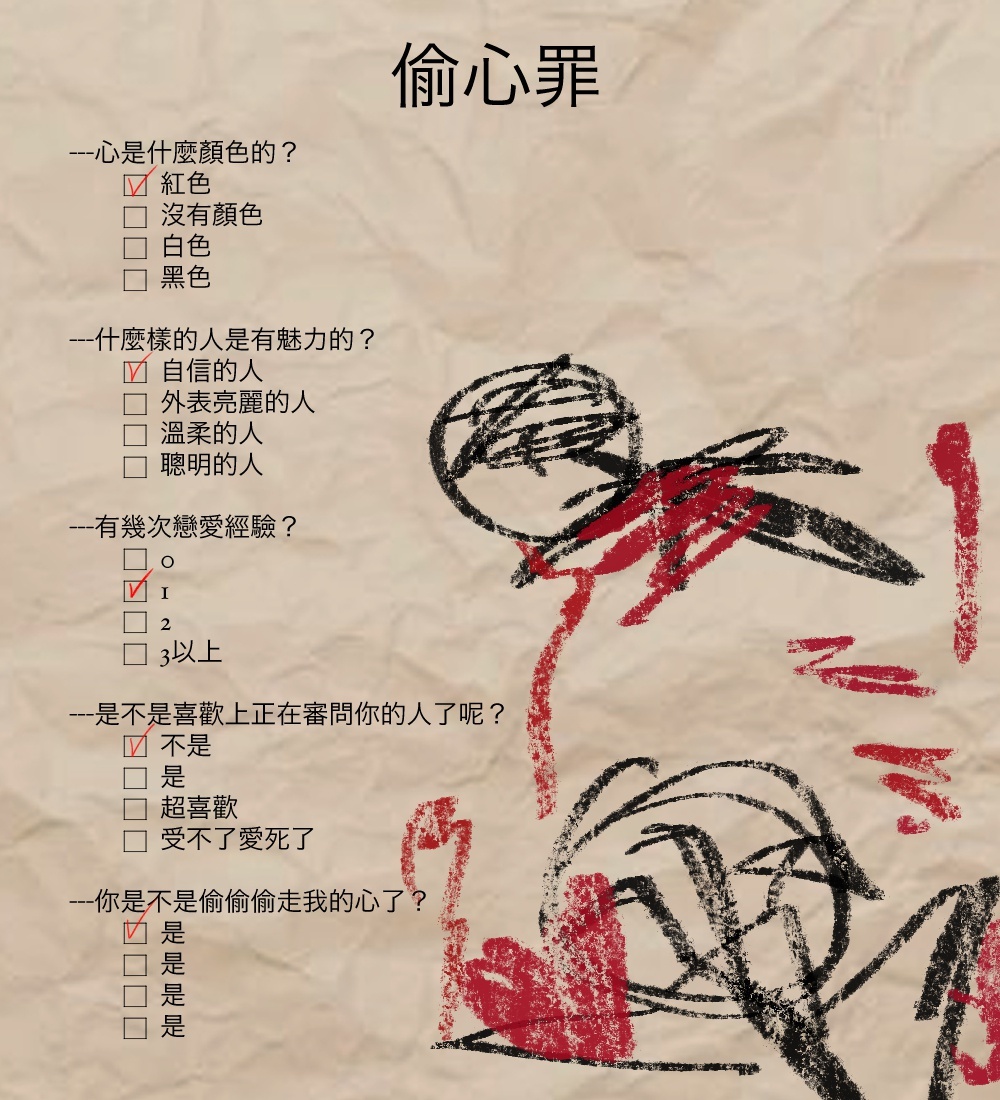 偷心罪
---心是什麼顏色的？
紅色
沒有顏色
白色
黑色
---什麼樣的人是有魅力的？
自信的人
外表亮麗的人
溫柔的人
聰明的人
---有幾次戀愛經驗？
0
1
2
3以上
---是不是喜歡上正在審問你的人了呢？
不是
是
超喜歡
受不了愛死了
---你是不是偷偷偷走我的心了？
是
是
是
是